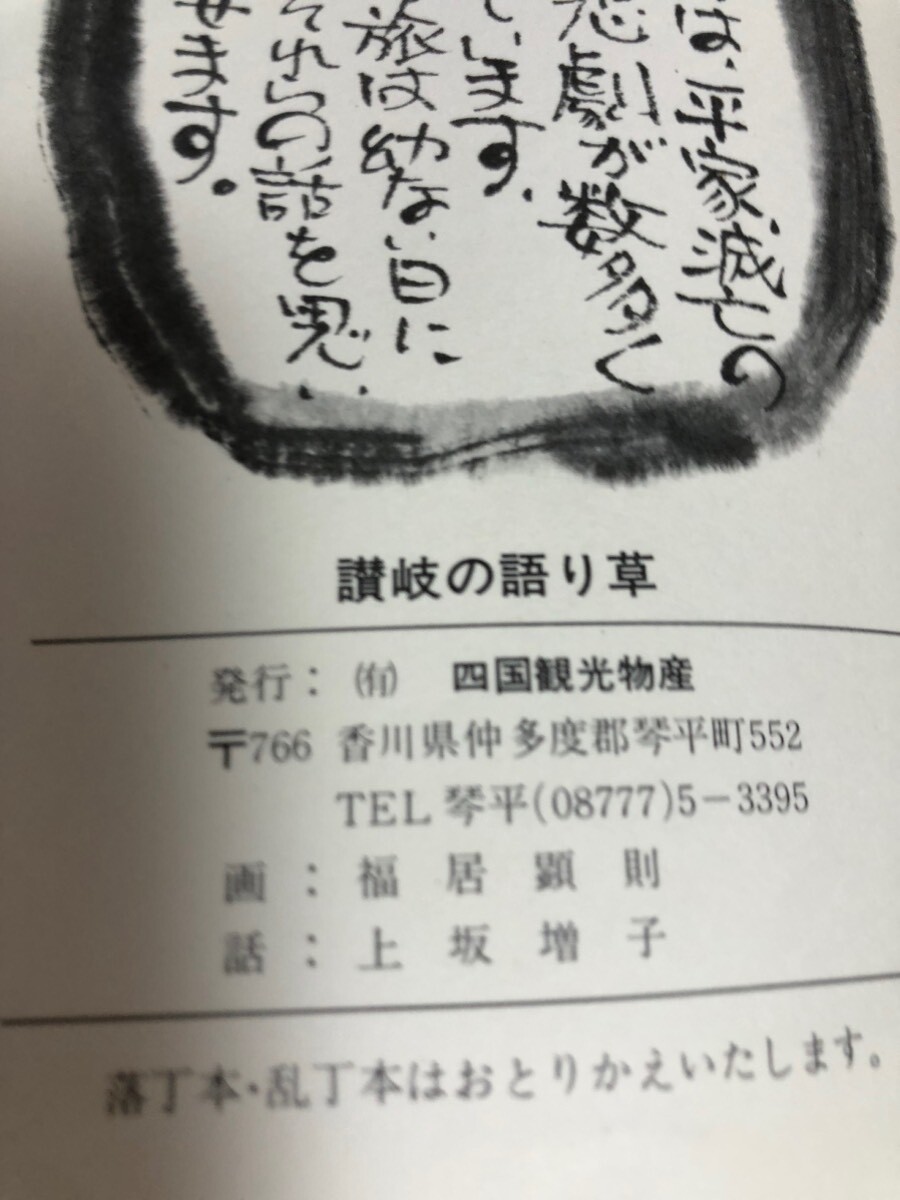 は、平家滅亡の
悲劇が数多く
います。
旅は幼ない日に
それらの話を思い
せます。
讃岐の語り草
発行：㈲ 四国観光物産
〒766 香川県仲多度郡琴平町552
TEL 琴平(08777)5-3395
画：福居顕則
話：上坂増子
落丁本・乱丁本はおとりかえいたします。